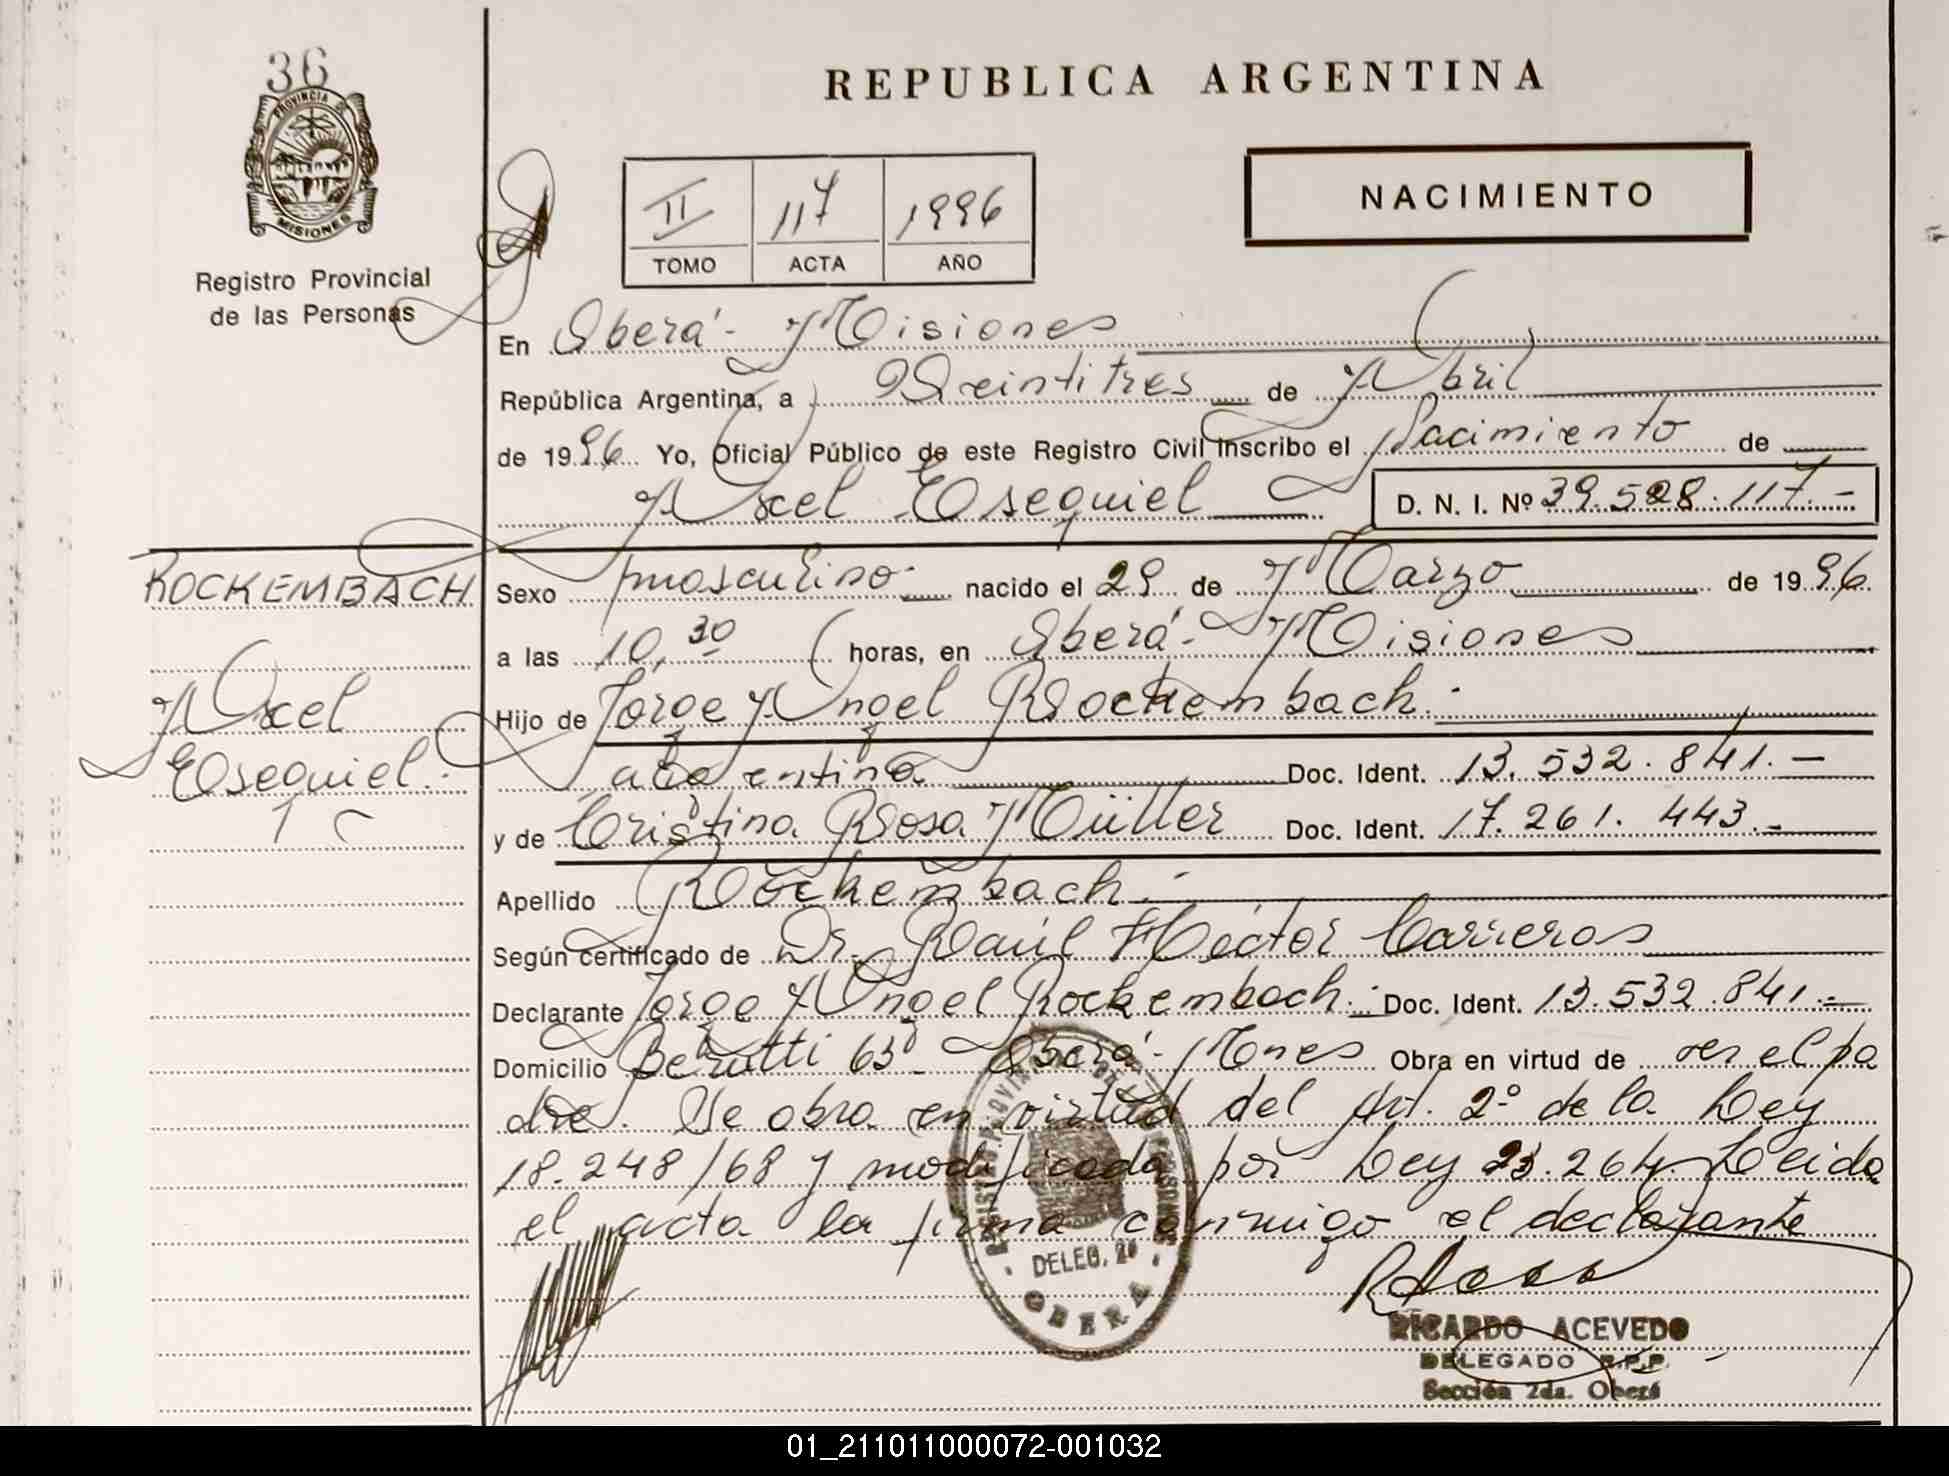 36
PROVINCIA DE
MISIONES
Registro Provincial
de las Personas
REPUBLICA ARGENTINA
NACIMIENTO
II 117 1996
TOMO ACTA AÑO
En Oberá - Misiones
República Argentina, a Veintitres de Abril
de 1996 Yo, Oficial Público de este Registro Civil inscribo el Nacimiento de
Axel Esequiel D. N. I. Nº 39.528.117.-
ROCKEMBACH
Axel
Esequiel.
Sexo masculino.- nacido el 29 de Marzo de 1996.
a las 10,30 horas, en Oberá - Misiones
Hijo de Jorge Angel Rockembach.-
argentino Doc. Ident. 13.532.841.-
y de Cristina Rosa Müller Doc. Ident. 17.261.443.-
Apellido Rockembach.-
Según certificado de Dr. Raúl Héctor Carreros
Declarante Jorge Angel Rockembach.- Doc. Ident. 13.532.841.-
Domicilio Berutti 63 - Oberá - Mnes Obra en virtud de ser el pa
dre. Se obra en virtud del Art. 2º de la Ley
18.248/68 y modificada por Ley 23.264. Leida
el acta la firma conmigo el declarante
DELEG. 2ª
OBERA
RICARDO ACEVEDO
DELEGADO R.P.P.
Sección 2da. Oberá
01_211011000072-001032